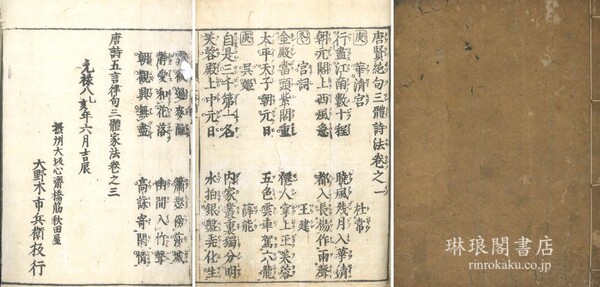 唐賢絶句三體詩法卷之一
華清宮 杜常
行盡江南數十程 曉風殘月入華清
朝元閣上西風急 都入長楊作雨聲
宮詞 王建
金殿當頭紫閣重 僊人掌上玉芙蓉
太平天子朝元日 五色雲車駕六龍
呉姫 薛能
自是三千第一名 内家叢裏獨分明
芙蓉殿上中元日 水拍銀盤弄化生
靜愛和花落 幽聞入竹聲
朝觀興無盡 高詠寄閑情
唐詩五言律句三體家法卷之三
元祿八乙亥年六月吉辰
摂州大坂心齋橋筋秋田屋
大野木市兵衛板行
琳琅閣書店
rinrokaku.co.jp